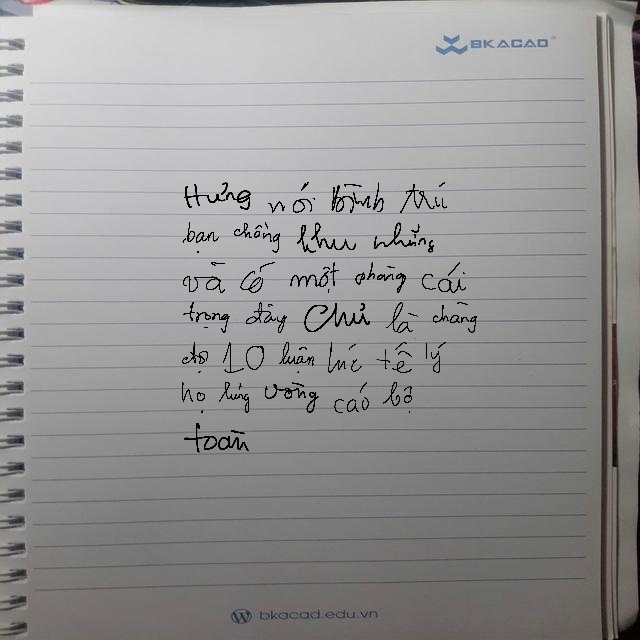 BKACAD
Hưng nói bình trú
bạn chồng khu những
và có một phòng cái
trọng đây Chủ là chẳng
10 luận lúc tế lý
họ vòng cáo bộ
toàn
bkacad.edu.vn